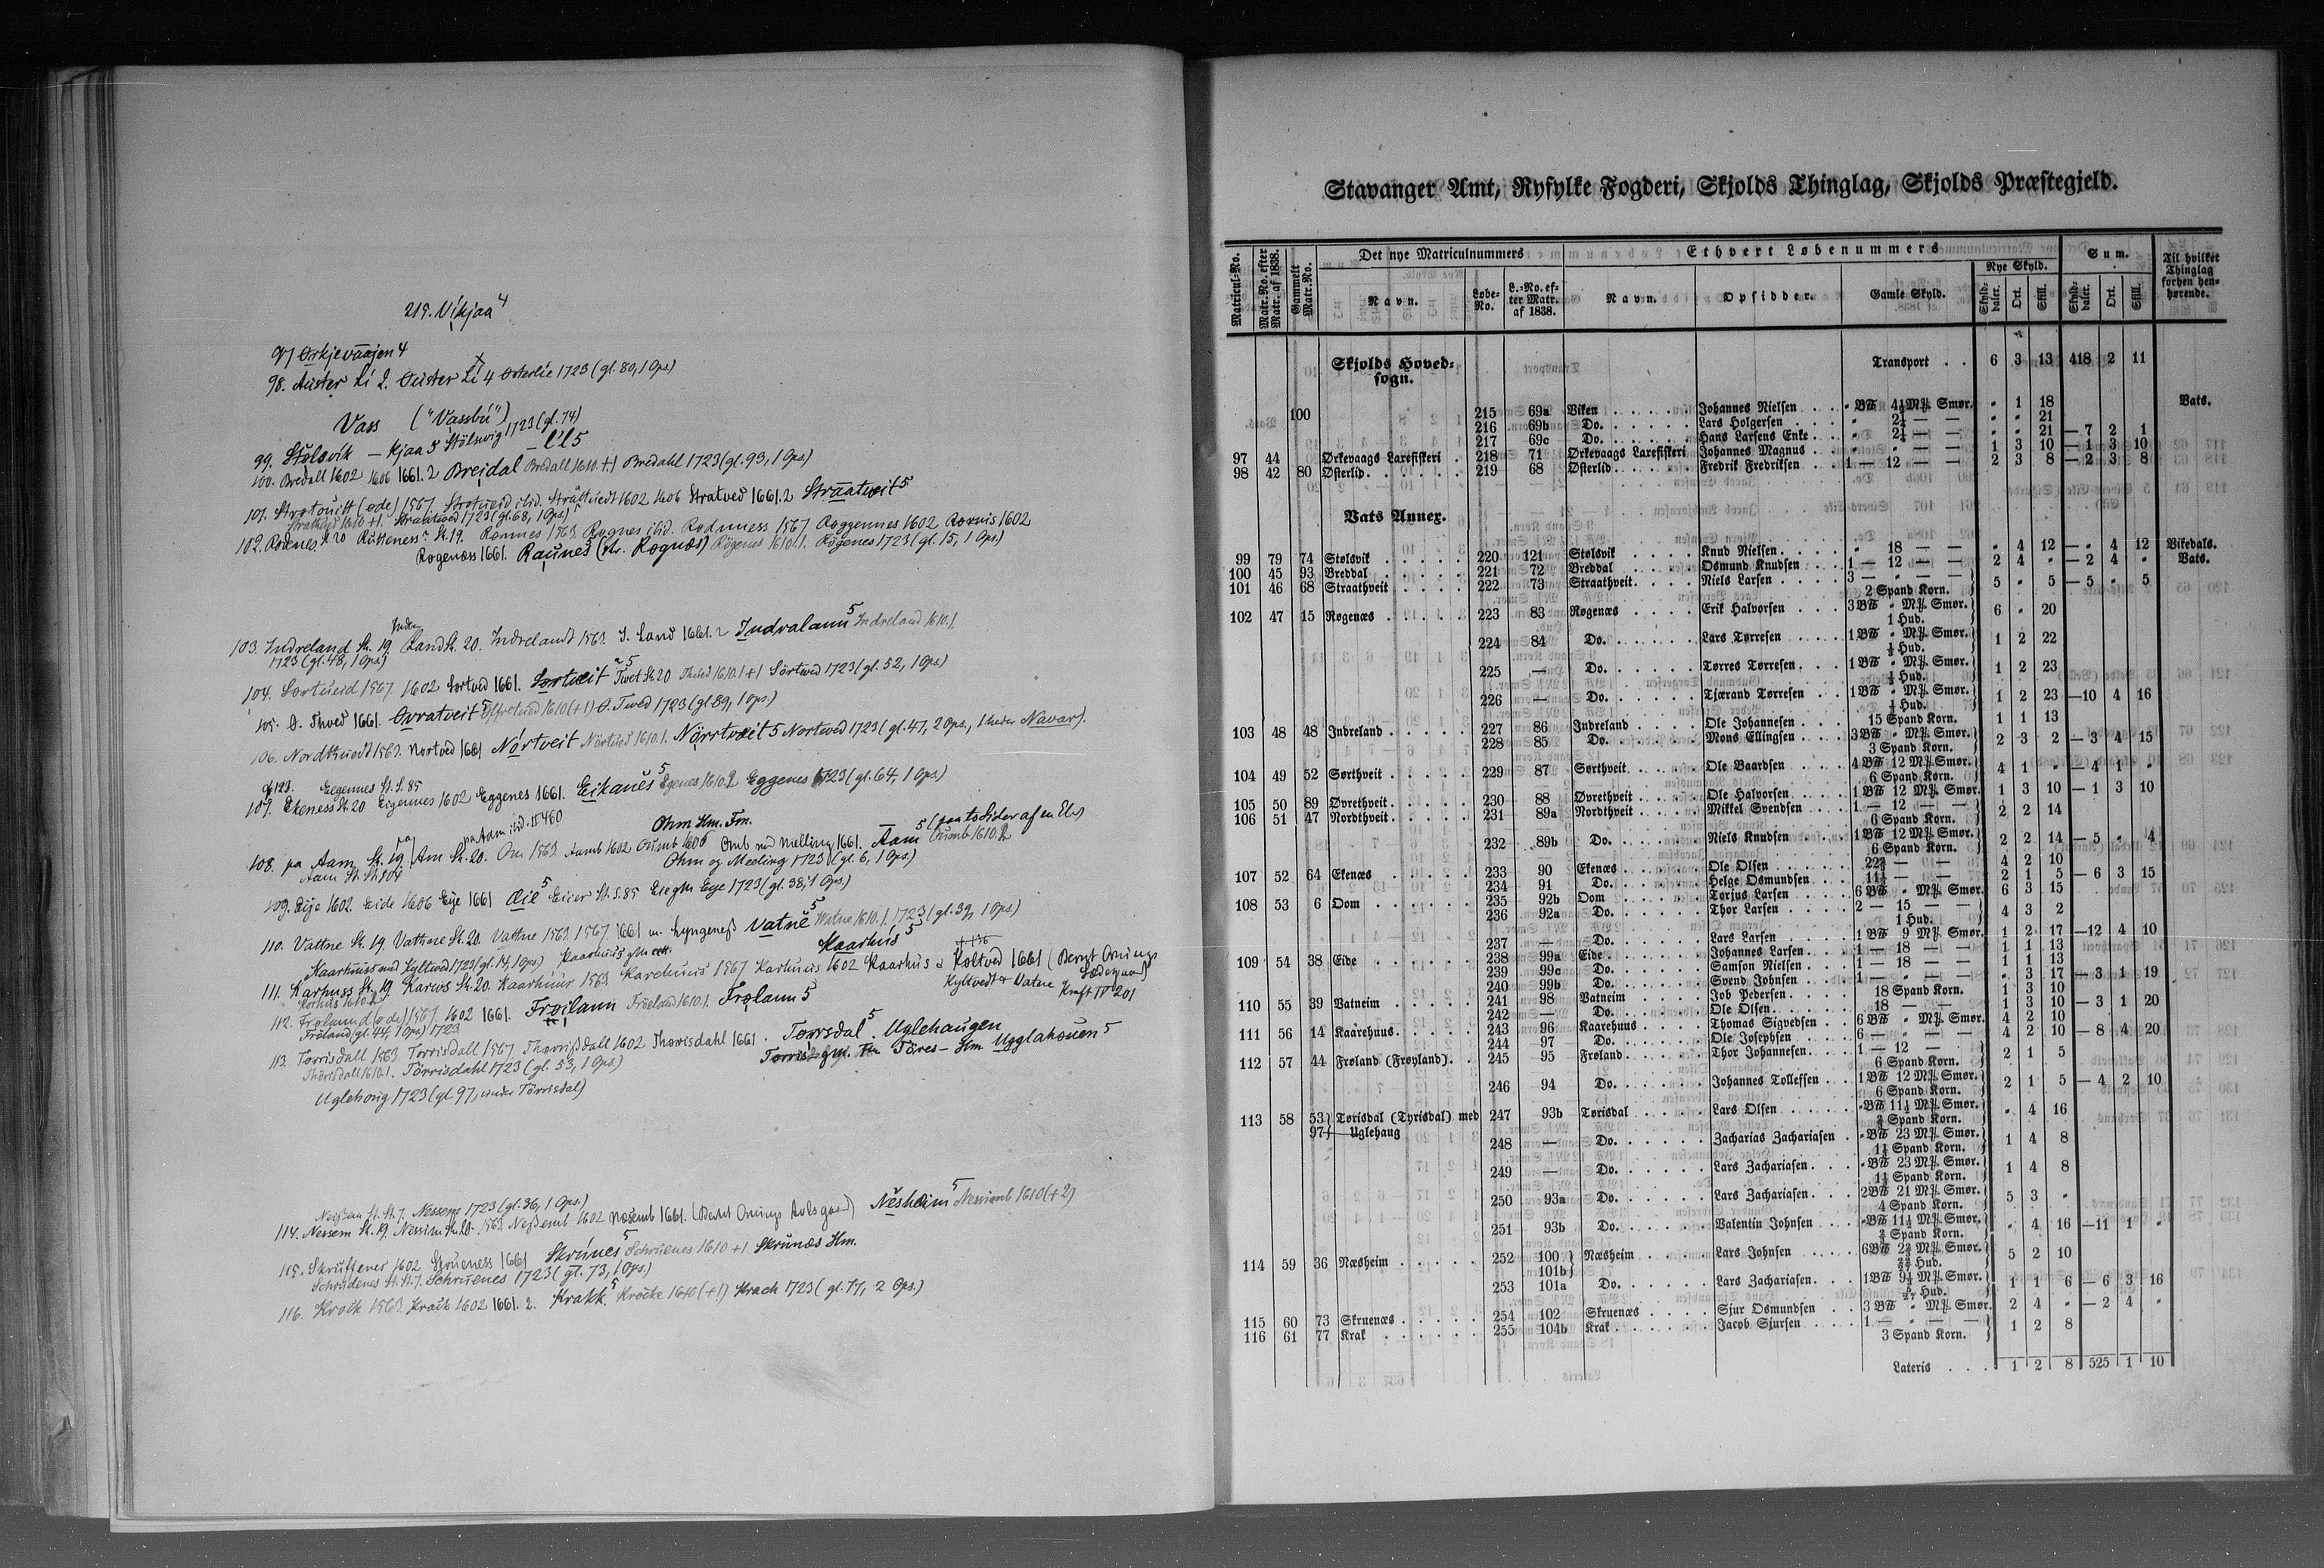 219. Vikjaa 4
97 Ørkjevaajen 4
98. Auster Li 2. Øuster Li 4 Østerlie 1723 (gl. 80, 1 Ops)
Vass ("Vassbú")
99. Stølsvik — kjaa 5 Stölsvig 1723 (gl. 74)
100. Bredall 1602 1606 1661.2 Breidal Bredall 1610.+1 Bredahl 1723 (gl. 93, 1 Ops)
101. (øde) 1567. 1602 1606 Stratved 1661.2 Straatveit 5
1610 +1. 1723 (gl. 68, 1 Ops.)
102. St. 19. 1563. Rognes ibid. Rodnness 1567 Roggennes 1602 1602
Rogenæss 1661. Raunes 5 Rögenes 1610.1. Rögenes 1723 (gl. 15, 1 Ops)
103. Indreland St. 19. Land St. 20. Indrelandt 1563. I. Land 1661. 2 Indralann 5 Indreland 1610.1
1723 (gl. 48, 1 Ops)
104. Sortueid 1567 1602 Sortved 1661. Sortveit 5 Tvet St. 20 1610.1+1 Sörtved 1723 (gl. 52, 1 Ops)
105. Ø. Thved 1661. Ovratveit 5 1610 (+1) O. Tved 1723 (gl 89, 1 Ops.)
106. Nordthuedt 1563. Nortved 1661 Nórtveit Nörtved 1610.1. Nörrtvæit 5 Nortwed 1723 (gl. 47, 2 Ops., 1 heder Navar).
cf 123. Eegennes St. S. 85
107. Ekeness St. 20 Eigennes 1602 Eggenes 1661. Eikanes 5 Egenes 1610.2 Eggenes 1723 (gl. 64, 1 Ops)
på Aam ibid. II 460 Ohm Hm. Fm. 5 (paa to Sider af en Elv)
108. pa Aam St. 19. Am St. 20. Om 1563. Aamb 1602 Oumb 1606 Omb med Melling 1661. Aam Oumb 1610.2
Aam Ohm og Meeling 1723 (gl. 6, 1 Ops.)
109. Eije 1602. Eide 1606 Eije 1661 Øie 5 Eiier St. S. 85 Eie Eye 1723 (gl. 38, 1 Ops)
110. Vattne St. 19. Vattne St. 20. Vattne 1563. 1567 1661 m. Lyngeness Vatne 5 Watne 1610.1 1723 (gl. 39, 1 Ops)
Kaarhuus med Kyltved 1723 (gl. 14, 1 Ops) Kaarhus 5
111. Karhuss St. 19. Karius St. 20. Kaarhuur 1563 Karehuus 1567 Karhuus 1602 Kaarhus & Koltved 1661 (Bergt Onnings
Kyltvedt & Vatne Kraft IV 201
112. Frøland (øde) 1567. 1602 1661. Frøilann Frieland 1610.1. Frølann 5
Freland (gl. 44, 1 Ops) 1723
113. Torrisdall 1563. Torrisdall 1567. Thorrißdall 1602 Thorisdahl 1661. Torrsdal 5. Uglehaugen
Thorisdall 1610.1. Törrisdahl 1723 (gl. 53, 1 Ops) Töres — Hm Ugglahouen 5
Uglehoug 1723 (gl. 97, under Törrisdal)
Neißem St. St. 7. Nessem 1723 (gl. 36, 1 Ops.)
114. Nessem St. 19. Nessim St. 20. 1563. Neßemb 1602 Nesemb 1661. Nešheim 5 Nessiemb 1610 (+2)
115. Skruffener 1602 Skrueness 1661 Skrúnes 5 Schruenes 1610 +1 Skrunæs Hm.
St. St. 7. Schruenes 1723 (gl. 73, 1 Ops.)
116. Kroik 1563. Krack 1602 1661. 2. Krakk 5 Kröcke 1610 (+1) Krach 1723 (gl. 77, 2 Ops.)
Stavanger Amt, Ryfylke Fogderi, Skjolds Thinglag, Skjolds Præstegjeld.
Matricul-No. Matr.No. efter Matr. af 1838. Gammelt Matr.No. Det nye Matriculnummers Ethvert Løbenummers Sum. Til hvilket Thinglag forhen henhørende.
Navn. Løbe-No. L.-No. efter Matr. af 1838. Navn. Opsidder. Gamle Skyld. Nye Skyld.
Skylddaler. Ort. Skill. Skylddaler. Ort. Skill.
Skjolds Hovedsogn. Transport . . 6 3 13 418 2 11
100 215 69a Viken Johannes Nielsen " BŦ 4½ M℔ Smør. " 1 18 Vats.
216 69b Do. Lars Holgersen " 2¼ — — " " 21
217 69c Do. Hans Larsens Enke " 2¼ — — " " 21 — 7 2 1
97 44 Ørkevaags Laxefiskeri 218 71 Ørkevaags Laxefiskeri Johannes Magnus " " — — 1 3 10 — 1 3 10
98 42 80 Østerlid 219 68 Østerlid Fredrik Fredriksen 1 — 12 — — 2 3 8 — 2 3 8
Vats Annex.
99 79 74 Stølsvik 220 121 Stølsvik Knud Nielsen " 18 — — " 4 12 — " 4 12 Vikedals.
100 45 93 Breddal 221 72 Breddal Osmund Knudsen 1 — 12 — — 2 4 " — 2 4 " Vats.
101 46 68 Straathveit 222 73 Straathveit Niels Larsen 3 — " — — 5 " 5 — 5 " 5
2 Spand Korn.
102 47 15 Røgenæs 223 83 Røgenæs Erik Halvorsen 3 BŦ " M℔ Smør. 6 " 20
1 Hud.
224 84 Do. Lars Tørresen 1 BŦ " M℔ Smør. 1 2 22
⅓ Hud.
225 — Do. Tørres Tørresen 1 BŦ " M℔ Smør. 1 2 23
⅓ Hud.
226 — Do. Tjærand Tørresen 1 BŦ " M℔ Smør. 1 2 23 —10 4 16
⅓ Hud.
103 48 48 Indreland 227 86 Indreland Ole Johannesen 15 Spand Korn. 1 1 13
228 85 Do. Mons Ellingsen 3 BŦ " M℔ Smør. 2 3 2 — 3 4 15
3 Spand Korn.
104 49 52 Sørthveit 229 87 Sørthveit Ole Baardsen 4 BŦ 12 M℔ Smør. 4 1 " — 4 1 "
6 Spand Korn.
105 50 89 Øvrethveit 230 88 Øvrethveit Ole Halvorsen 1 BŦ 12 M℔ Smør. 1 3 10 — 1 3 10
106 51 47 Nordthveit 231 89a Nordthveit Mikkel Svendsen 1 — 12 — — 2 2 14
6 Spand Korn.
232 89b Do. Niels Knudsen 1 BŦ 12 M℔ Smør. 2 2 14 — 5 " 4
6 Spand Korn.
107 52 64 Ekenæs 233 90 Ekenæs Ole Olsen 22⅔ — — 4 2 10
234 91 Do. Helge Osmundsen 11⅓ — — 2 1 5 — 6 3 15
108 53 6 Oom 235 92b Oom Torjus Larsen 6 BŦ " M℔ Smør. 6 3 15
236 92a Do. Thor Larsen 2 — 15 — — 4 3 2
1 Hud.
237 — Do. Lars Larsen 1 BŦ 9 M℔ Smør. 1 2 17 —12 4 10
109 54 38 Eide 238 99a Eide Johannes Larsen 1 — 18 — — 1 1 13
239 99c Do. Samson Nielsen 1 — 18 — — 1 1 13
240 99b Do. Svend Johnsen 1 — " — — " 3 17 — 3 1 19
110 55 39 Vatneim 241 98 Vatneim Job Pedersen 18 Spand Korn. 1 3 10
242 — Do. Ole Olsen 18 — — 1 3 10 — 3 1 20
111 56 14 Kaarehuus 243 96 Kaarehuus Thomas Sigvedsen 6 BŦ " M℔ Smør. 4 2 10
244 97 Do. Ole Josephsen 6 — " — — 4 2 10 — 8 4 20
112 57 44 Frøland (Frøyland) 245 95 Frøland Thor Johannesen 1 — 12 — 2 1 5
6 Spand Korn.
246 94 Do. Johannes Tollefsen 1 BŦ 12 M℔ Smør. 2 1 5 — 4 2 10
6 Spand Korn.
113 58 53 Tørisdal (Tyrisdal) med 247 93b Tørisdal Lars Olsen " BŦ 11½ M℔ Smør. " 4 16
97 Uglehaug ⅔ Spand Korn.
248 — Do. Zacharias Zachariasen " BŦ 23 M℔ Smør. 1 4 8
1⅓ Spand Korn.
249 — Do. Lars Zachariasen " BŦ 23 M℔ Smør. 1 4 8
1⅓ Spand Korn.
250 93a Do. Lars Zachariasen 2 BŦ 21 M℔ Smør. 5 3 "
4 Spand Korn.
251 93b Do. Valentin Johnsen " BŦ 11½ M℔ Smør. " 4 16 —11 1 "
⅔ Spand Korn.
114 59 36 Næsheim 252 100 101b Næsheim Lars Johnsen 6 BŦ M℔ Smør. 5 2 10
Hud.
253 101a Do. Lars Zachariasen 1 BŦ M℔ Smør. 1 1 6 — 6 3 16
Hud.
115 60 73 Skruenæs 254 102 Skruenæs Sjur Osmundsen 3 BŦ " M℔ Smør. 2 4 " — 2 4 "
116 61 77 Krak 255 104b Krak Jacob Sjursen 1 — " — — 1 2 8
3 Spand Korn.
Lateris . . . 1 2 8 525 1 10